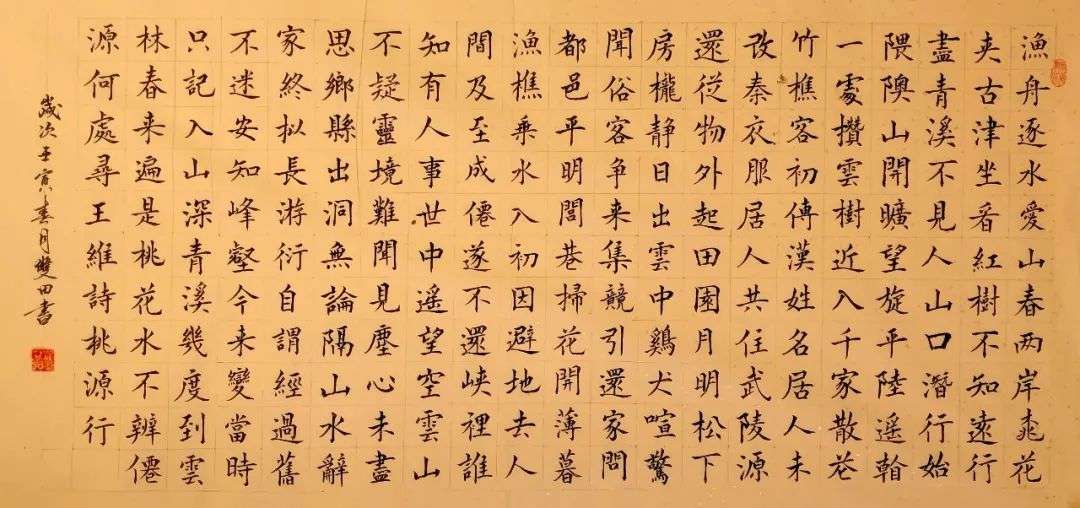 漁舟逐水愛山春两岸桃花
夹古津坐看紅樹不知遠行
盡青溪不見人山口潛行始
隈隩山開曠望旋平陸遥
一處攢雲樹近入千家散花
竹樵客初傳漢姓名居人未
改秦衣服居人共住武陵源
還從物外起田園月明松下
房櫳静日出雲中鷄犬喧驚
聞俗客争来集競引還家問
都邑平明閭巷掃花開薄暮
漁樵乗水入初因避地去人
間及至成僊遂不還峡裡誰
知有人事世中遥望空雲山
不疑靈境難聞見塵心未盡
思鄉縣出洞無論隔山水辭
家終拟長游衍自謂經過舊
不迷安知峰壑今来變當時
只記入山深青溪幾度到雲
林春来遍是桃花水不辨僊
源何處尋王維詩桃源行
歲次壬寅春月雙田書